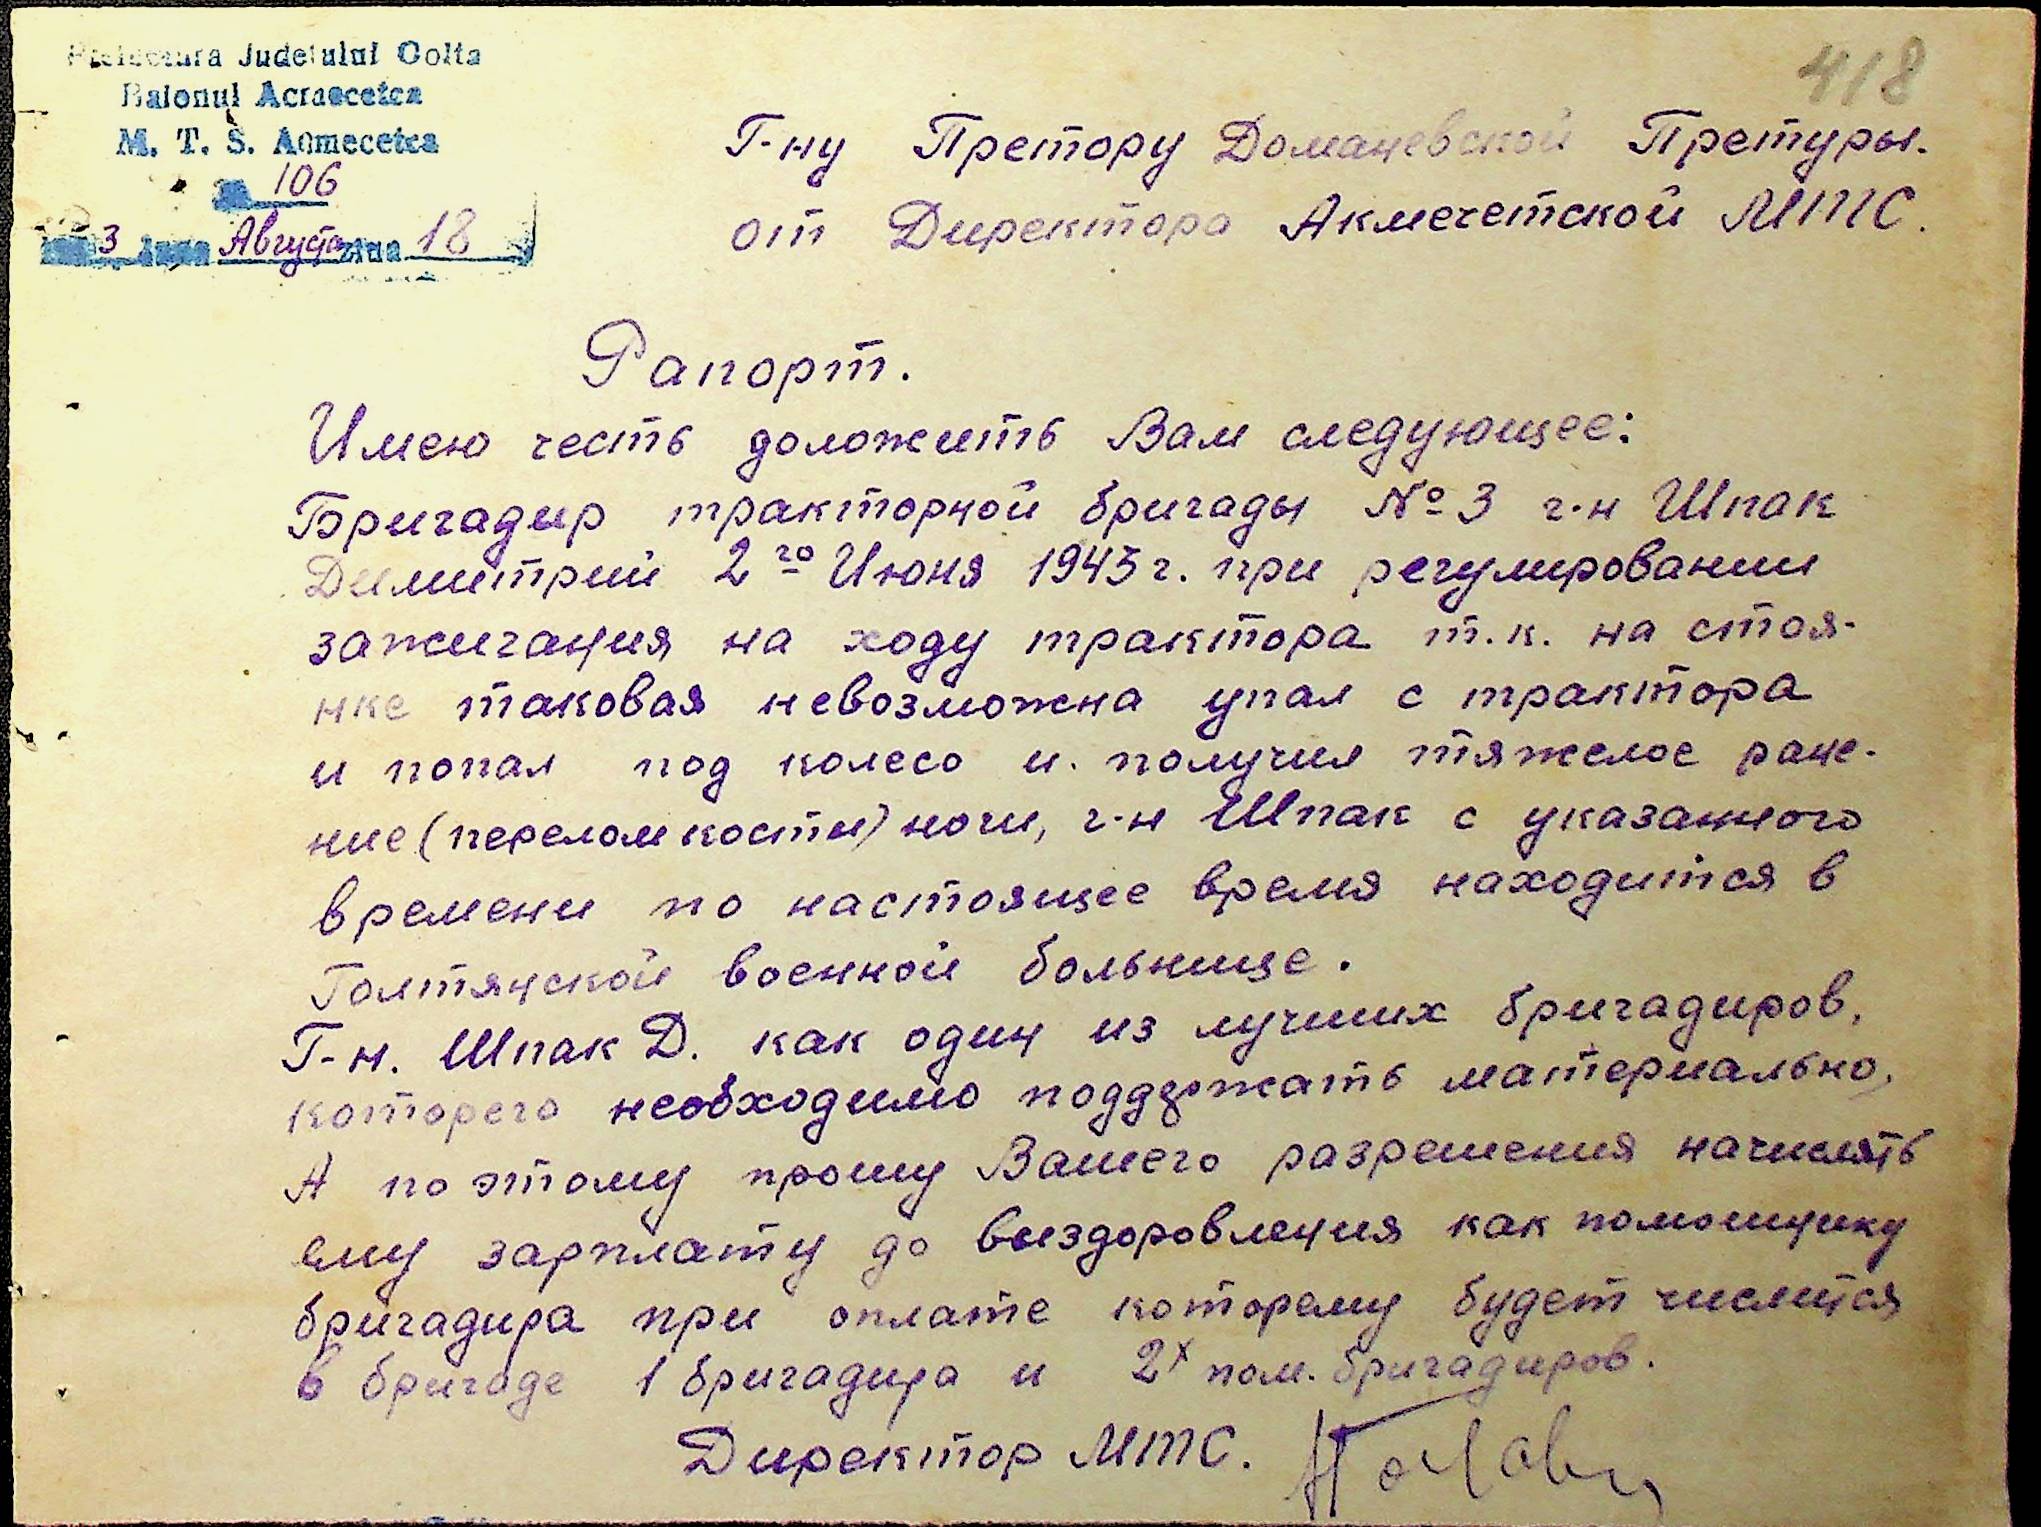 Prefectura Judetului Golta
Raionul Acmecetca
M. T. S. Acmecetca
106
3 luna Августа ziua 18
418
Г-ну Претору Доманевской Претуры.
от Директора Акмечетской МТС.
Рапорт.
Имею честь доложить Вам следующее:
Бригадир тракторной бригады № 3 г-н Шпак
Димитрий 2го Июня 1943 г. при регулировании
зажигания на ходу трактора т.к. на стоя-
нке таковая невозможна упал с трактора
и попал под колесо и. получил тяжелое ране-
ние (перелом кости) ноги, г-н Шпак с указанного
времени по настоящее время находится в
Голтянской военной больнице.
Г-н. Шпак Д. как один из лучших бригадиров,
которого необходимо поддержать материально,
А по этому прошу Вашего разрешения начислять
ему зарплату до выздоровления как помощнику
бригадира при оплате которему будет числится
в бригаде 1 бригадира и 2х пом. бригадиров.
Директор МТС.